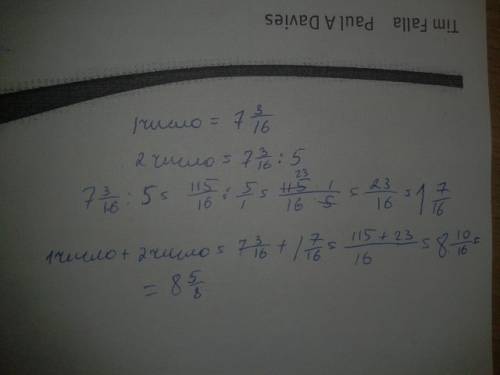 Tim Falla Paul A Davies
1 число = 7 3/16
2 число = 7 3/16 : 5
7 3/16 : 5 = 115/16 : 5/1 = 115 23 · 1/16 · 5 = 23/16 = 1 7/16
1 число + 2 число = 7 3/16 + 1 7/16 = 115 + 23/16 = 8 10/16 =
= 8 5/8